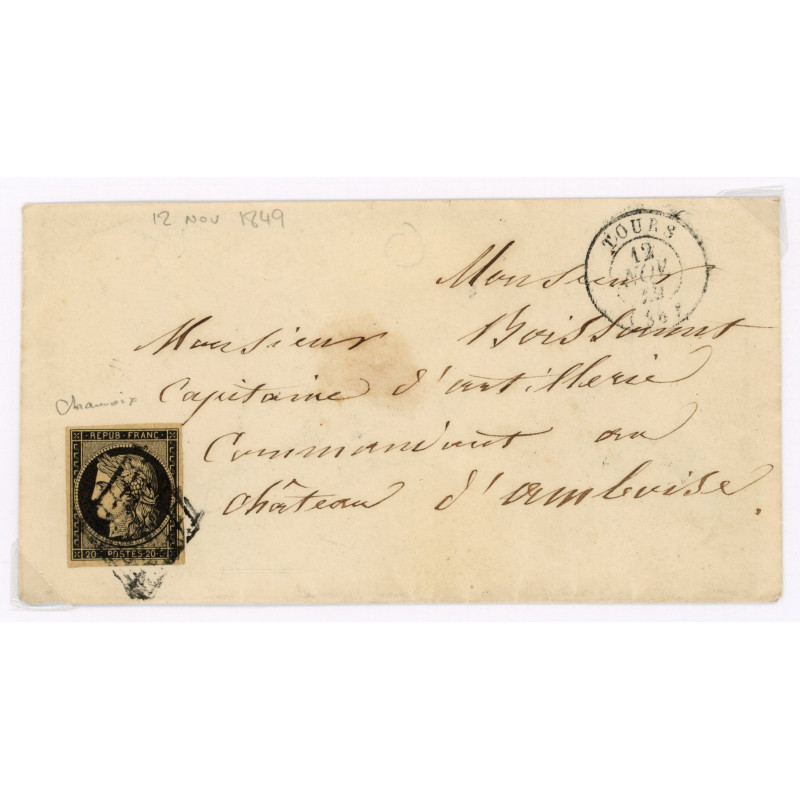 12 NOV 1849
TOURS
12
NOV
49
(36)
Monsieur
Monsieur Boissonnet
Capitaine d'artillerie
Commandant au
Château d'amboise.
chamois
REPUB. FRANC.
20 POSTES 20